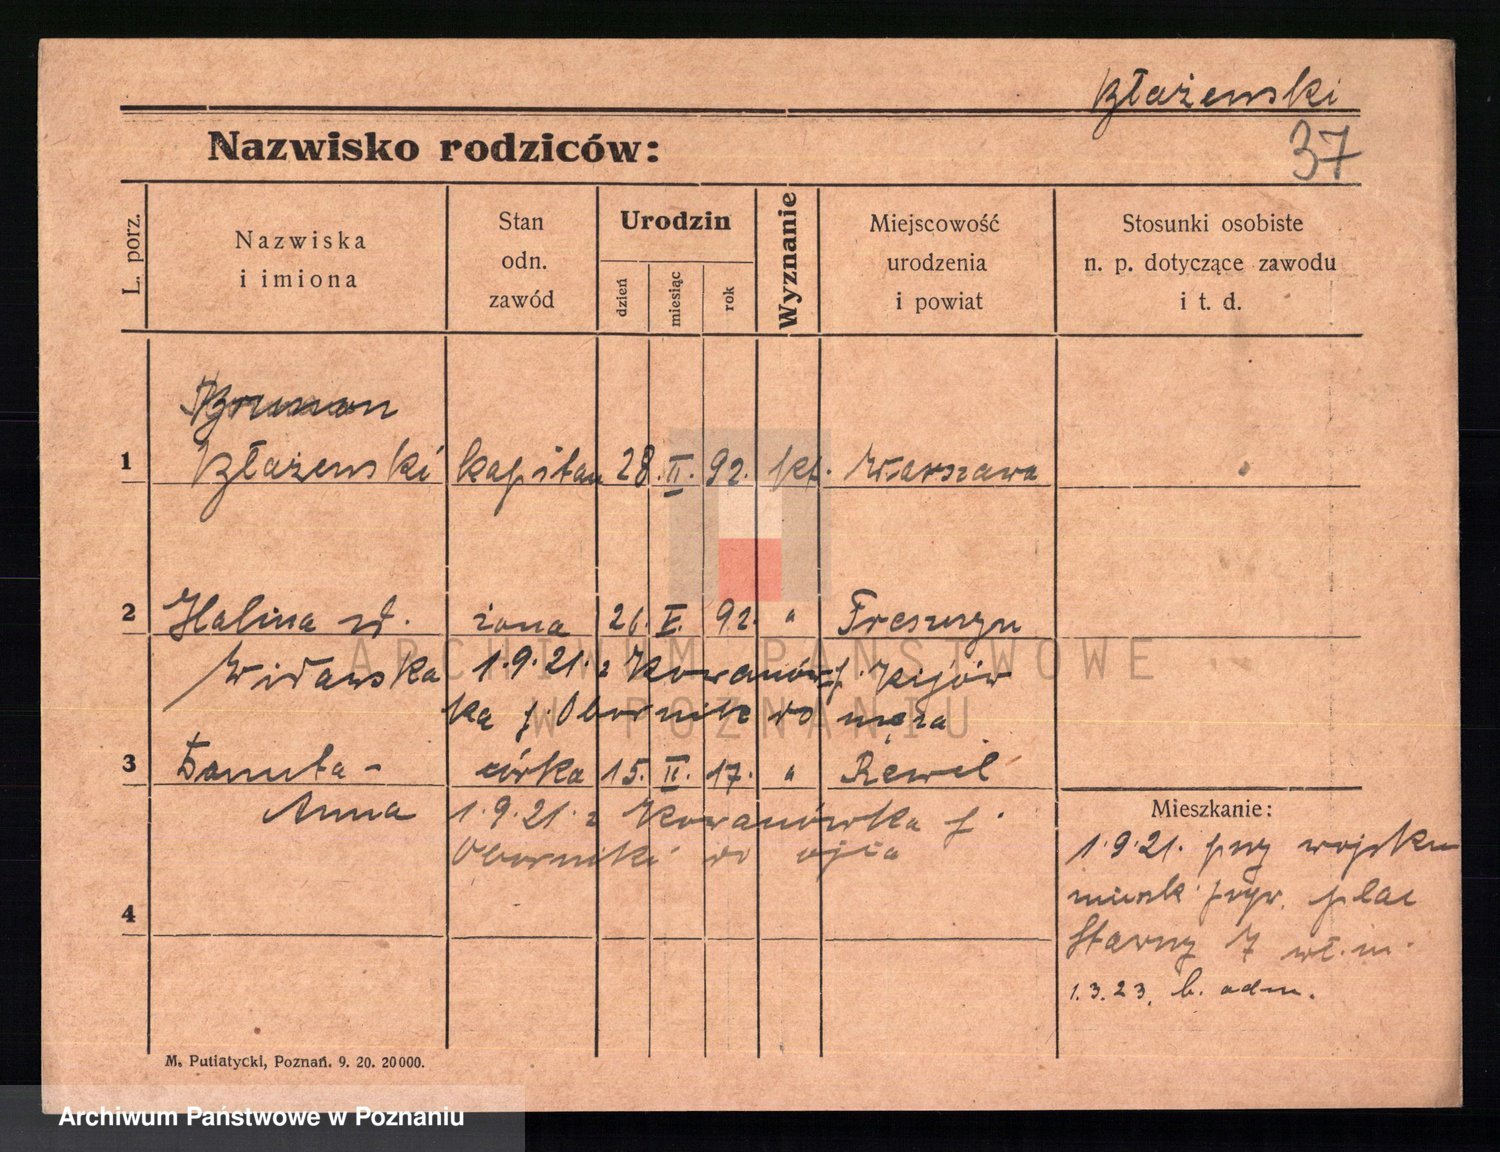 Błażewski
37
Nazwisko rodziców:
L. porz.
Nazwiska
i imiona
Stan
odn.
zawód
Urodzin
dzień
miesiąc
rok
Wyznanie
Miejscowość
urodzenia
i powiat
Stosunki osobiste
n. p. dotyczące zawodu
i t. d.
Brunon
1 Błażewski kapitan 28. II. 92. kt. Warszawa
2 Halina żona 26. V. 92. "
Widawska 1.9.21. z Kowanów= p. Kijów
ka p. Obornik do męża
3 Danuta- córka 15. II. 17. " Rewel
Anna 1.9.21. z Kowanówka p.
Oborniki do ojca
4
Mieszkanie:
1.9.21. przy wojsku
plac
7
1.3.23. b. adm.
M. Putiatycki, Poznań. 9. 20. 20000.
ARCHIWUM PAŃSTWOWE
W POZNANIU
Archiwum Państwowe w Poznaniu